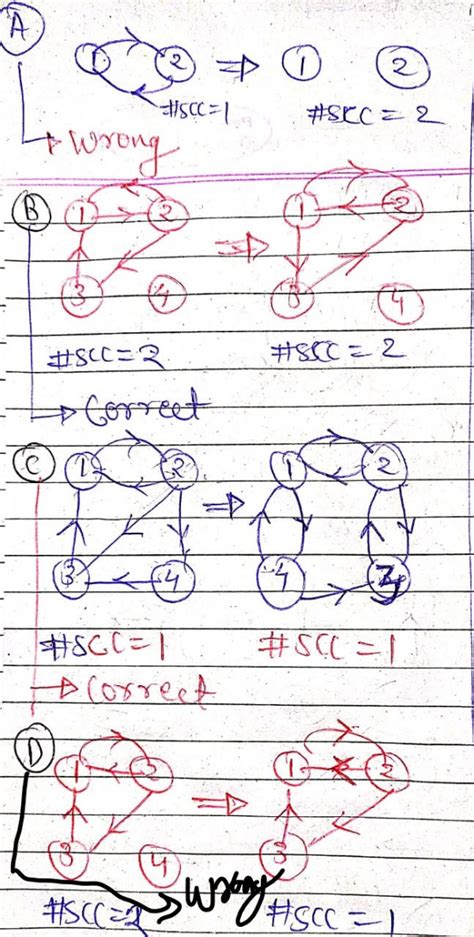 A
1 2 ⇒ 1 2
#SCC=1 #SCC = 2
→ Wrong
B 1 2 ⇒ 1 2
3 4 3 4
#SCC=2 #SCC = 2
→ Correct
C 1 2 ⇒ 1 2
3 4 4 3
#SCC=1 #SCC = 1
→ Correct
D 1 2 ⇒ 1 2
3 4 3
→ Wrong
#SCC=2 #SCC = 1